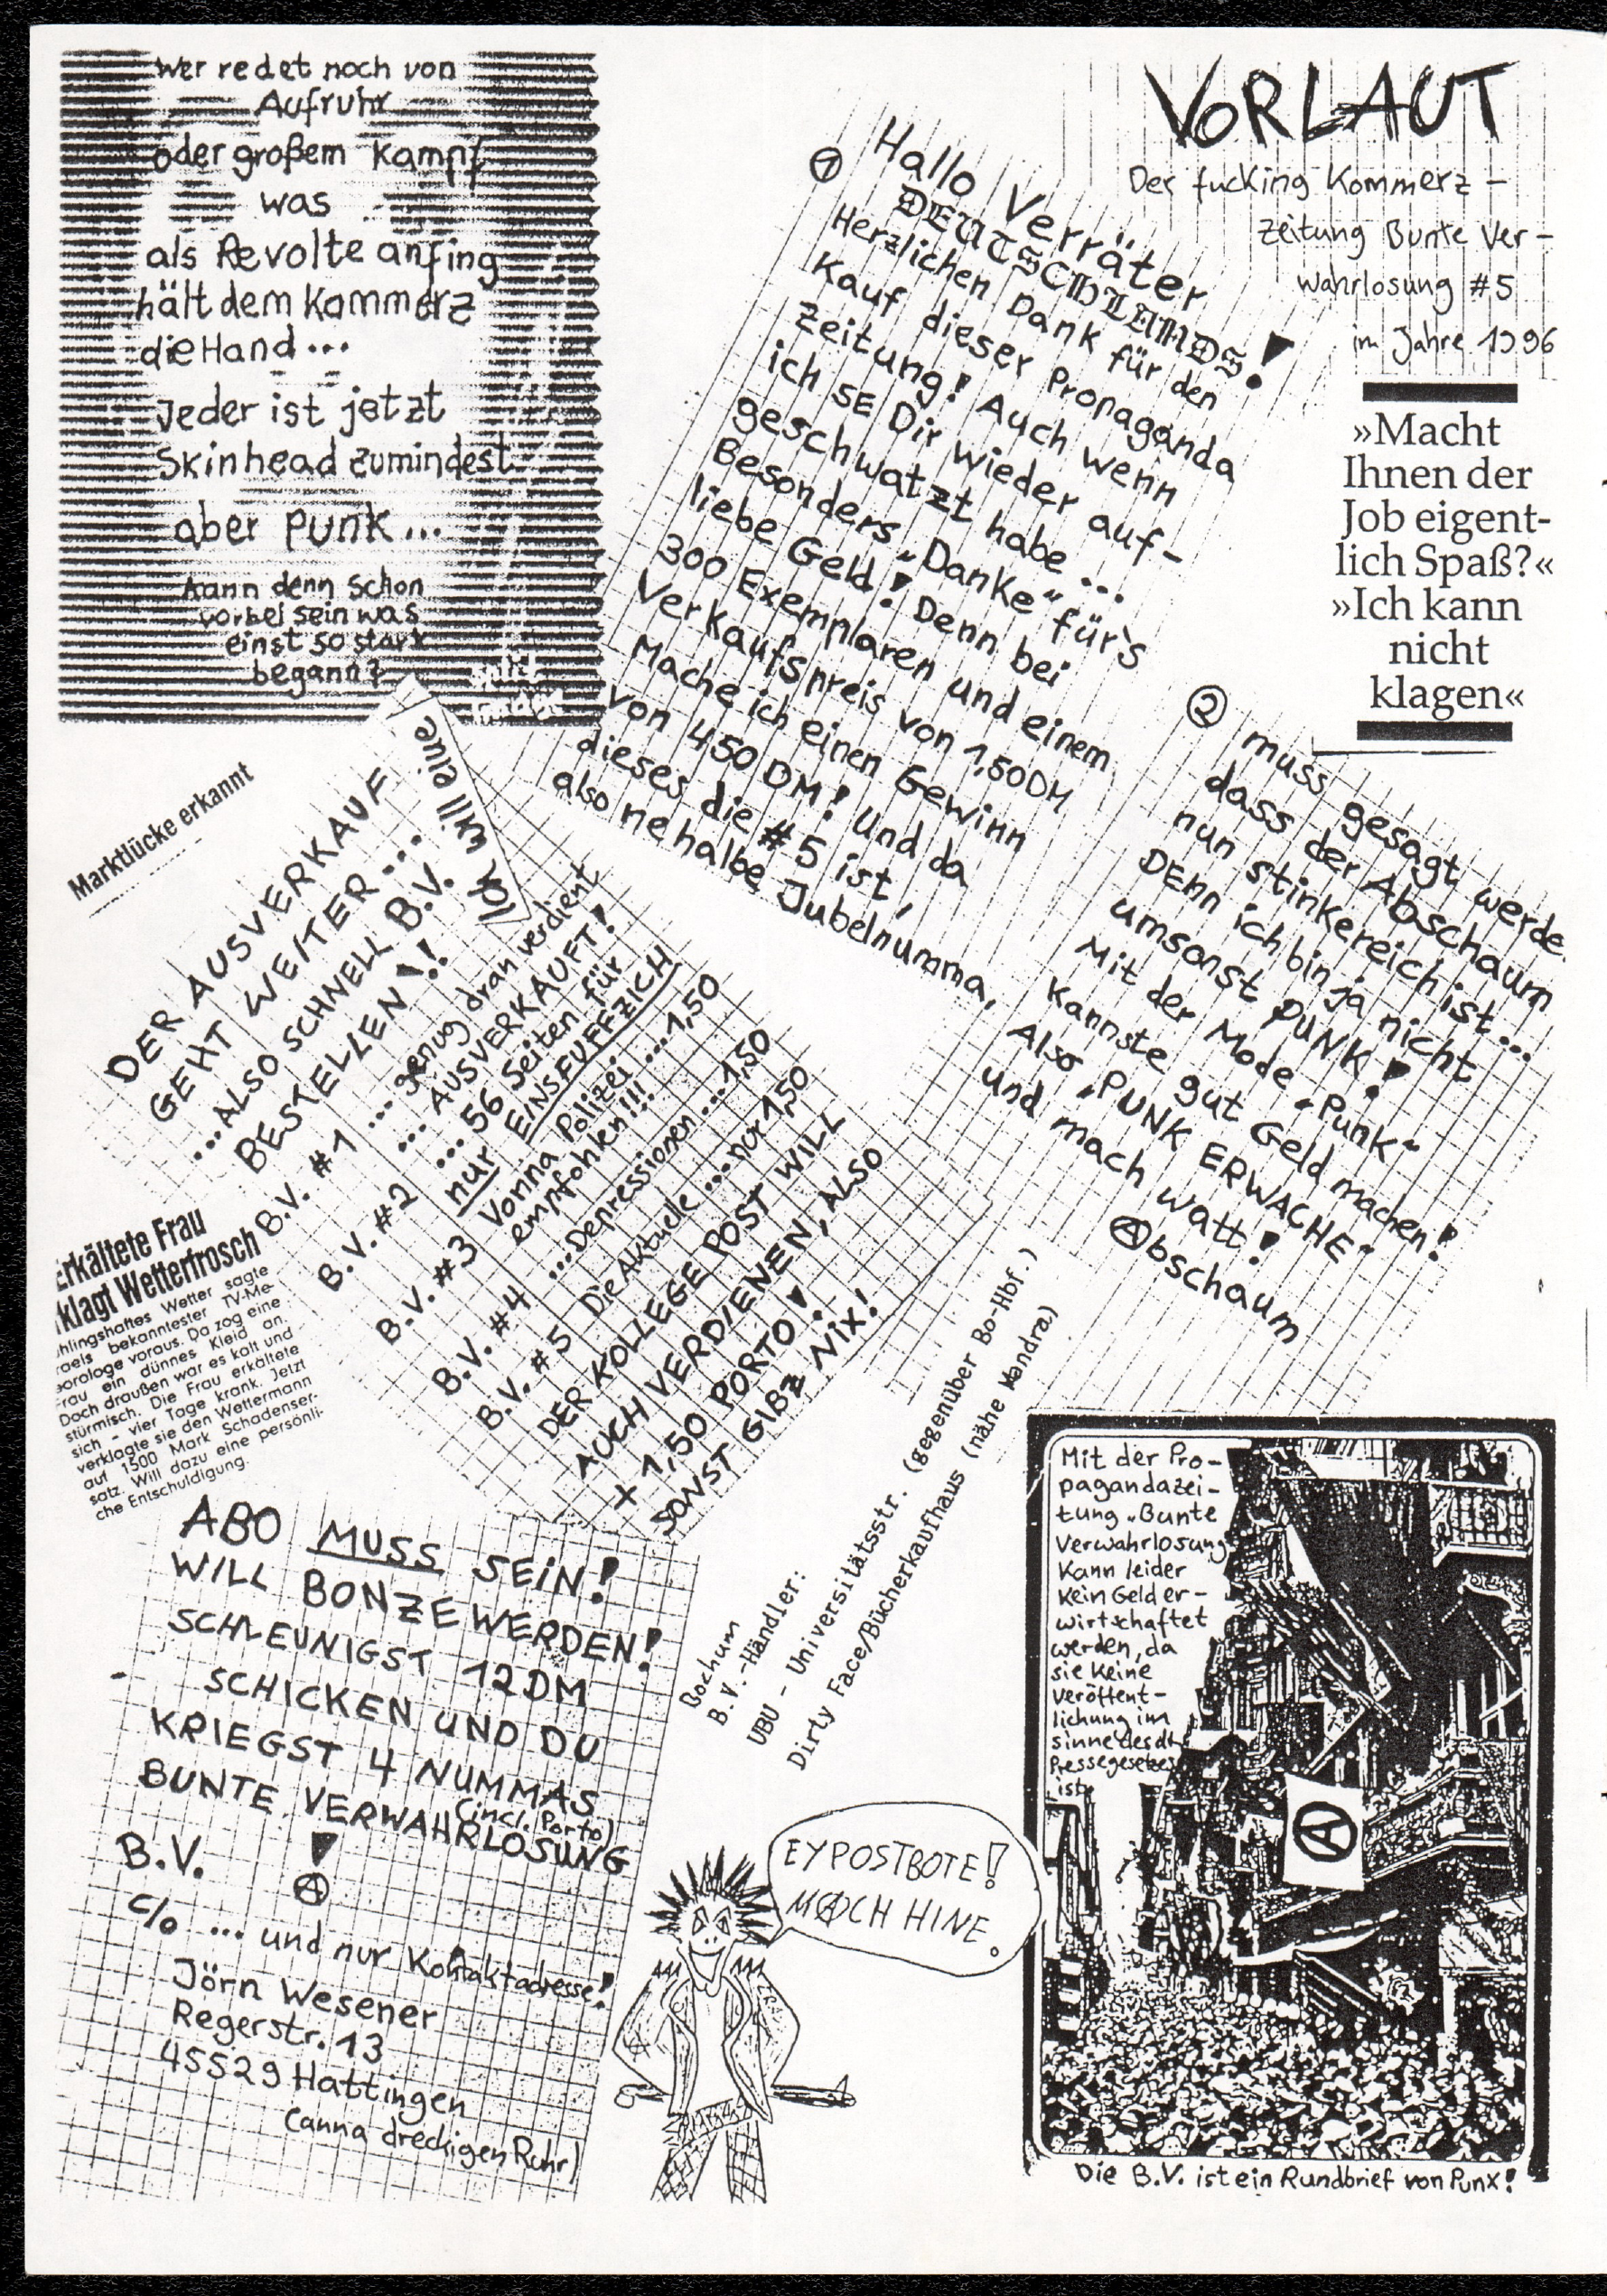 wer redet noch von
Aufruhr
oder großem Kampf
was
als Revolte anfing
hält dem Kommerz
die Hand...
Jeder ist jetzt
Skinhead zumindest
aber Punk...
kann denn schon
vorbei sein was
einst so stark
begann?
VORLAUT
Der fucking Kommerz-
zeitung Bunte Ver-
wahrlosung #5
im Jahre 1996
»Macht
Ihnen der
Job eigent-
lich Spaß?«
»Ich kann
nicht
klagen«
① Hallo Verräter
DEUTSCHLANDS!
Herzlichen Dank für den
Kauf dieser Propaganda
Zeitung! Auch wenn
ich SE Dir wieder auf-
geschwatzt habe...
Besonders „Danke“ für's
liebe Geld! Denn bei
300 Exemplaren und einem
Verkaufspreis von 1,50DM
Mache ich einen Gewinn
von 450 DM! Und da
dieses die #5 ist,
also ne halbe Jubelnumma,
② muss gesagt werde
dass der Abschaum
nun stinkereich ist...
DEnn ich bin ja nicht
umsonst PUNK!
Mit der Mode „Punk“
Kannste gut Geld machen!
Also „PUNK ERWACHE“
und mach watt!
Ⓐbschaum
Marktlücke erkannt
Ich will eine
DER AUSVERKAUF
GEHT WEITER...
...ALSO SCHNELL B.V.
BESTELLEN!!
B.V. #1 ... genug dran verdient
... AUSVERKAUFT!
B.V. #2 ... 56 Seiten für
nur EINSFUFFZICH
B.V. #3 Vonna Polizei ...1,50
empfohlen!!!
B.V. #4 ...Depressionen...1,50
B.V. #5 Die Aktuelle ...nur 1,50
DER KOLLEGE POST WILL
AUCH VERDIENEN, ALSO
+ 1,50 PORTO!
SONST GIBZ NIX!
Erkältete Frau
klagt Wetterfrosch
hlingshaftes Wetter sagte
raels bekanntester TV-Me-
eorologe voraus. Da zog eine
Frau ein dünnes Kleid an.
Doch draußen war es kalt und
stürmisch. Die Frau erkältete
sich – vier Tage krank. Jetzt
verklagte sie den Wettermann
auf 1500 Mark Schadenser-
satz. Will dazu eine persönli-
che Entschuldigung.
ABO MUSS SEIN!
WILL BONZE WERDEN!
SCHLEUNIGST 12DM
SCHICKEN UND DU
KRIEGST 4 NUMMAS
BUNTE VERWAHRLOSUNG
(incl. Porto)
!
Ⓐ
B.V.
c/o ... und nur Kontaktadresse!
Jörn Wesener
Regerstr. 13
45529 Hattingen
(anna dreckigen Ruhr)
Bochum
B.V.-Händler:
UBU - Universitätsstr. (gegenüber Bo-Hbf.)
Dirty Face/Bücherkaufhaus (nähe Mandra)
EY POSTBOTE!
MⒶCH HINE.
Mit der Pro-
pagandazei-
tung „Bunte
Verwahrlosung
Kann leider
kein Geld er-
wirtschaftet
werden, da
sie keine
Veröffent-
lichung im
sinne des dt.
Pressegesetzes
ist.
Ⓐ
Die B.V. ist ein Rundbrief von Punx!